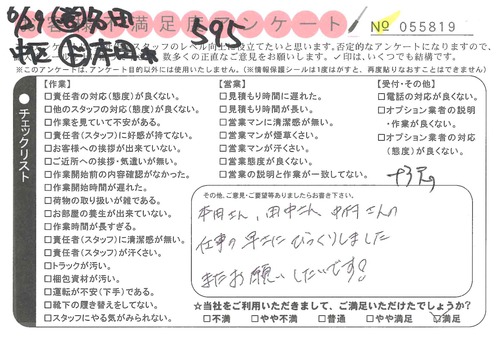 お客様不満足度アンケート
№ 055819
595
スタッフのレベル向上に役立てたいと思います。否定的なアンケートになりますので、
数多くの正直なご意見をお願いします。✓印は、いくつでも結構です。
※このアンケートは、アンケート目的以外には使用いたしません。(※情報保護シールは1度はがすと、再度貼りなおすことはできません)
チェックリスト
【作業】
□責任者の対応(態度)が良くない。
□他のスタッフの対応(態度)が良くない。
□作業を見ていて不安がある。
□責任者(スタッフ)に好感が持てない。
□お客様への挨拶が出来ていない。
□ご近所への挨拶・気遣いが無い。
□作業開始前の内容確認がなかった。
□作業開始時間が遅れた。
□荷物の取り扱いが雑である。
□お部屋の養生が出来ていない。
□作業時間が長すぎる。
□責任者(スタッフ)に清潔感が無い。
□責任者(スタッフ)が汗くさい。
□トラックが汚い。
□梱包資材が汚い。
□運転が不安(下手)である。
□靴下の履き替えをしてない。
□スタッフにやる気がみられない。
【営業】
□見積もり時間に遅れた。
□見積もり時間が長い。
□営業マンに清潔感が無い。
□営業マンが煙草くさい。
□営業マンが汗くさい。
□営業態度が良くない。
□営業の説明と作業が一致してない。
【受付・その他】
□電話の対応が良くない。
□オプション業者の説明
・作業が良くない。
□オプション業者の対応
(態度)が良くない。
その他、ご意見・ご要望等ありましたらお書き下さい。
本田さん、田中さん 中村さんの
仕事の早さにびっくりしました
またお願いしたいです!
☆当社をご利用いただきまして、ご満足いただけたでしょうか?
□不満 □やや不満 □普通 □やや満足 ☑満足